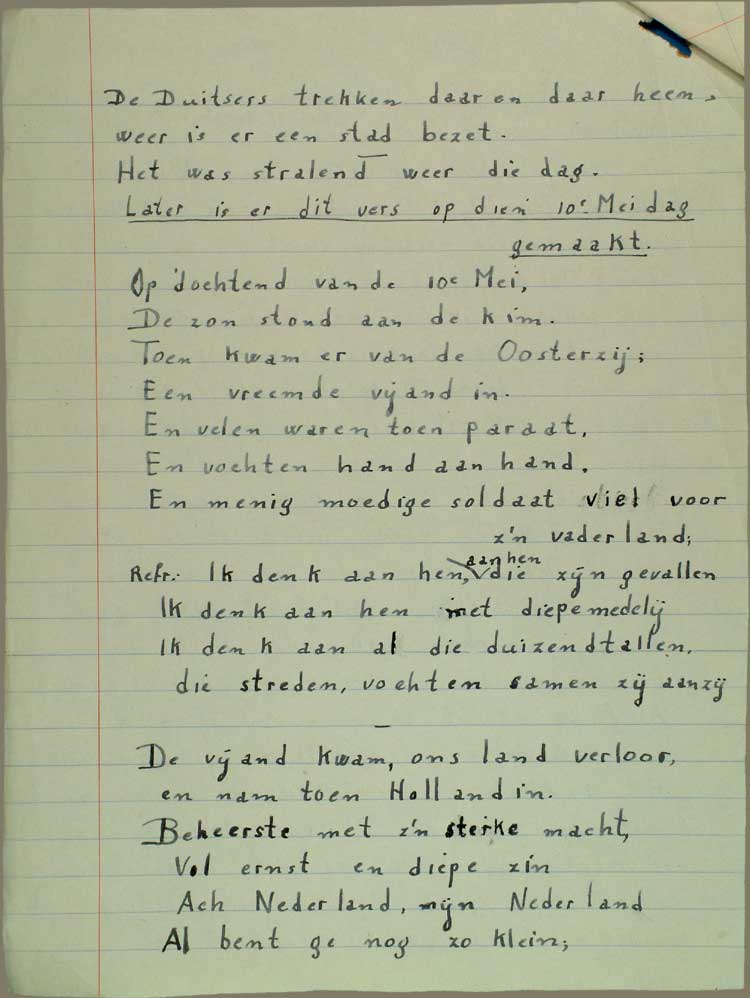 De Duitsers trekken daar en daar heen,
weer is er een stad bezet.
Het was stralend weer die dag.
Later is er dit vers op dien 10e Mei dag
gemaakt.
Op d'ochtend van de 10e Mei,
De zon stond aan de kim.
Toen kwam er van de Oosterzij;
Een vreemde vijand in.
En velen waren toen paraat,
En vochten hand aan hand.
En menig moedige soldaat viel voor
z'n vaderland;
Refr: Ik denk aan hen, aan hen die zijn gevallen
Ik denk aan hen met diepe medelij
Ik denk aan al die duizendtallen,
die streden, vochten samen zij aan zij
De vijand kwam, ons land verloor,
en nam toen Holland in.
Beheerste met z'n sterke macht,
Vol ernst en diepe zin
Ach Nederland, mijn Nederland
Al bent ge nog zo klein;